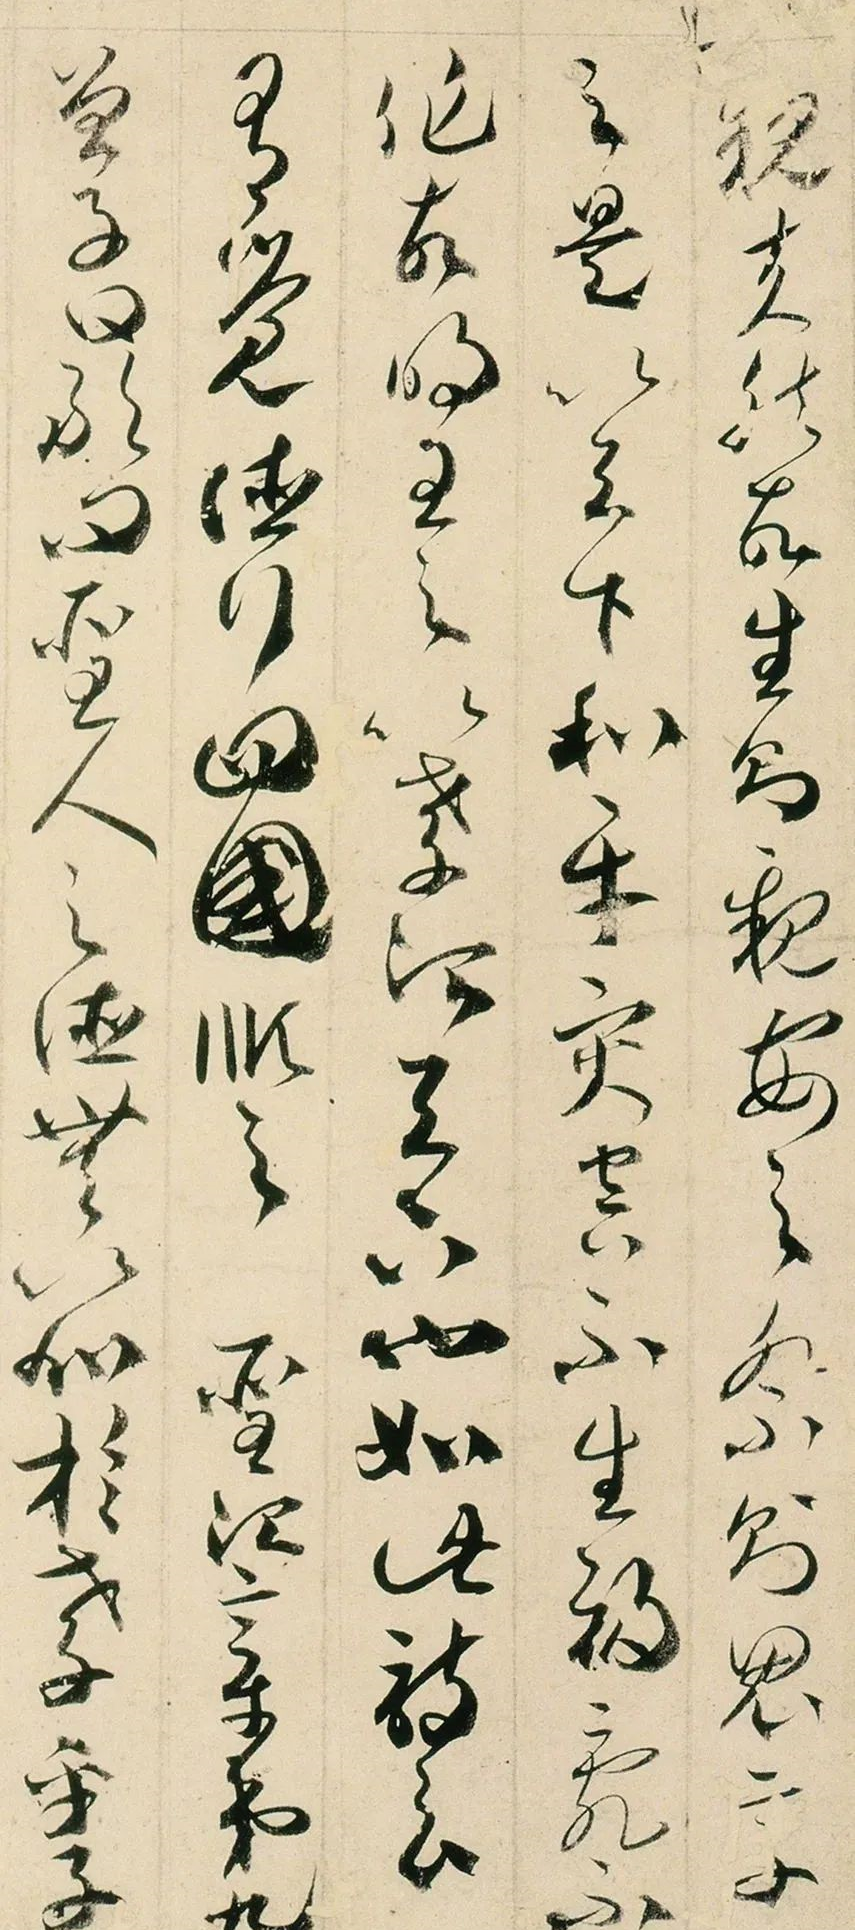 親夫然故生則親安之祭則鬼享
之是以天下和平災害不生禍亂不
作故明王之以孝治天下也如此詩云
有覺德行四國順之　聖治章第九
曾子曰敢問聖人之德無以加於孝乎子